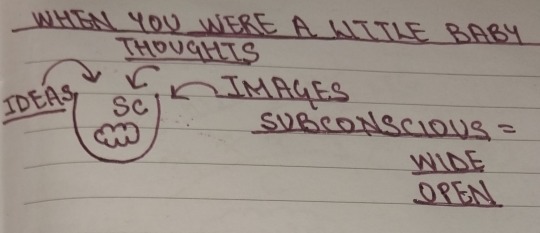 WHEN YOU WERE A LITTLE BABY
THOUGHTS
IDEAS
SC
IMAGES
SUBCONSCIOUS =
WIDE
OPEN